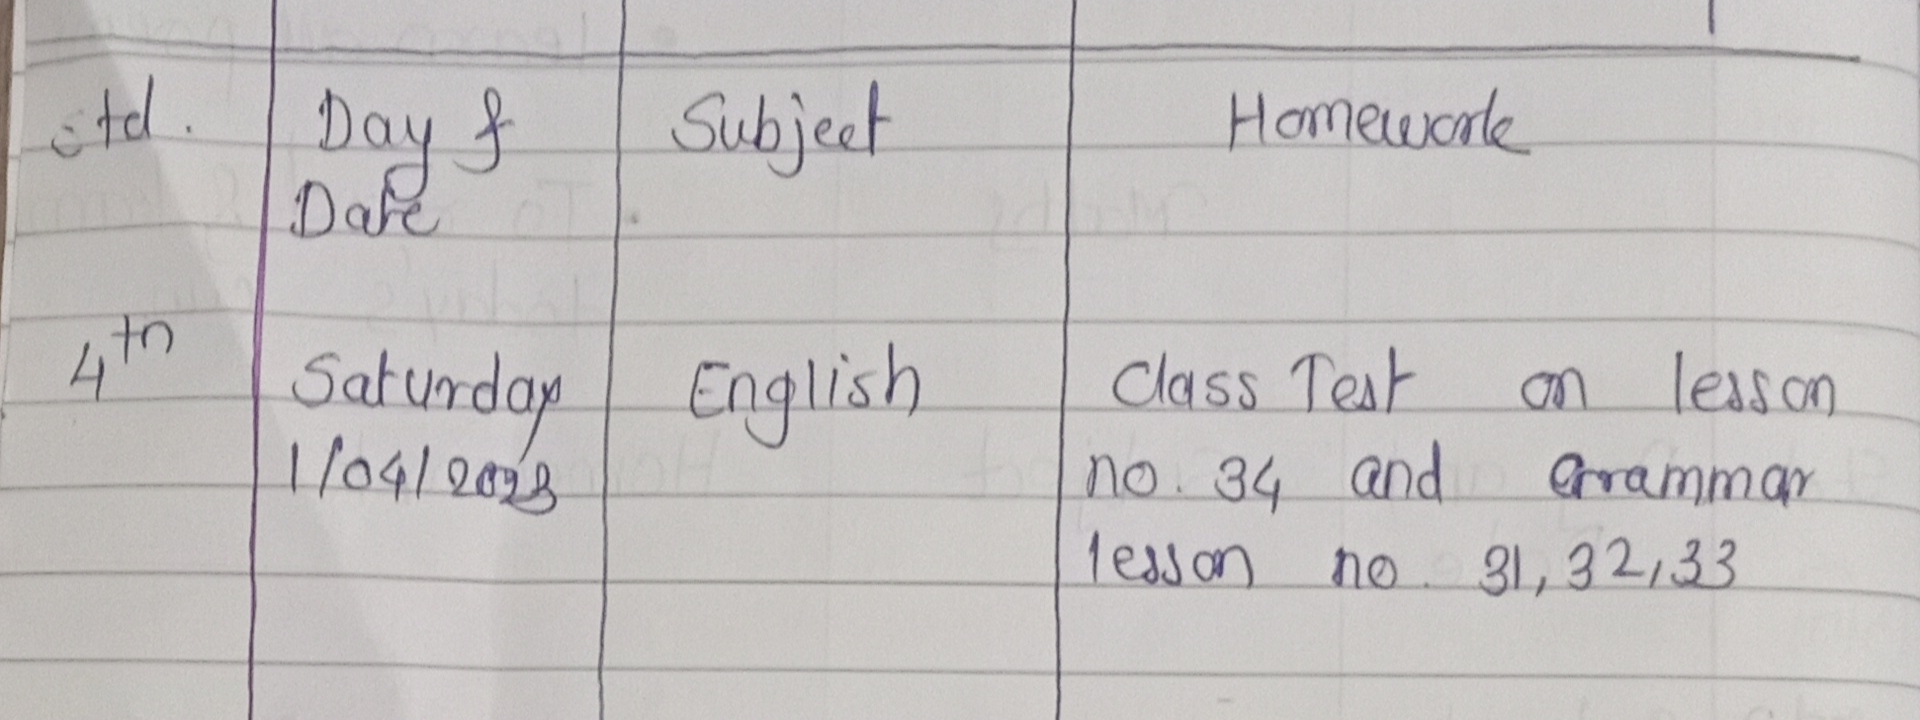 Std. Day & Subject Homework
Date
4th Saturday English Class Test on lesson
1/04/2023 no. 34 and Grammar
lesson no. 31, 32, 33